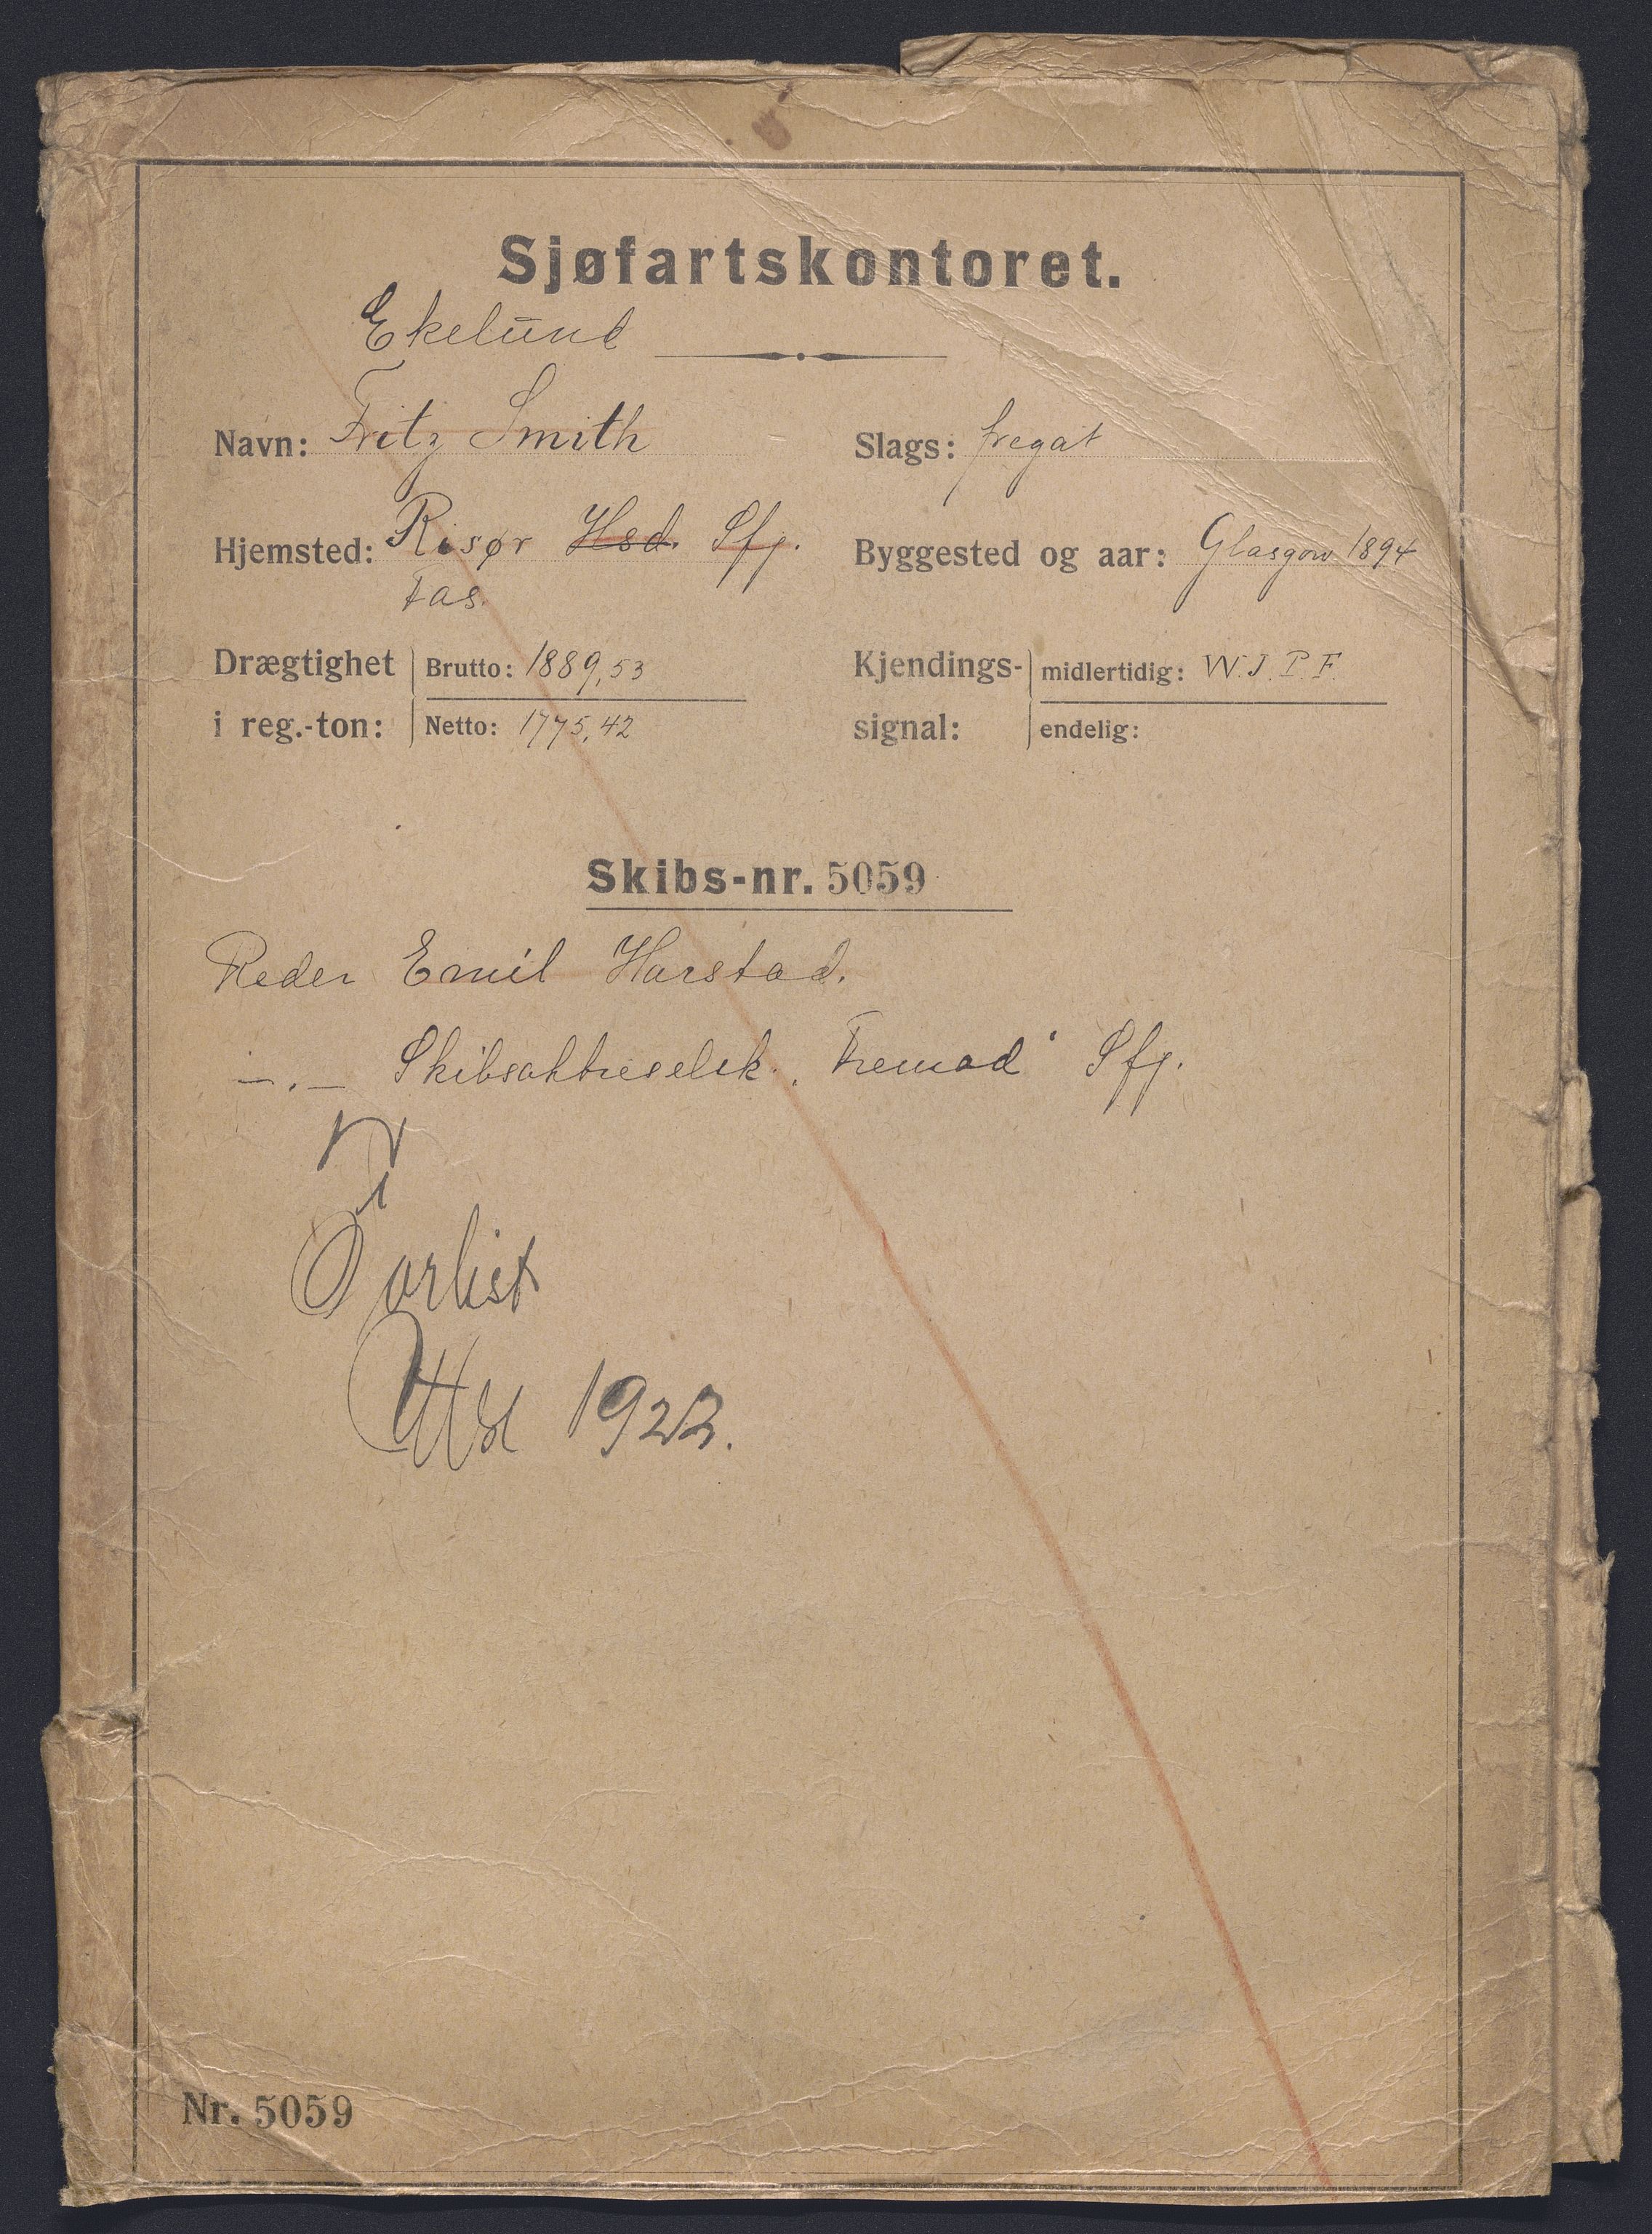 Sjøfartskontoret.
Ekelund
Navn: Fritz Smith
Slags: fregat
Hjemsted: Risør Hsd. Sfj.
Byggested og aar: Glasgow 1894
Drægtighet Brutto: 1889,53
i reg.-ton: Netto: 1775,42
Kjendings- midlertidig: W.J.P.F.
signal: endelig:
Skibs-nr. 5059
Reder Emil Harstad.
—.— Skibsaktieselsk. „Fremad" Sfj.
Forlist
1922.
Nr. 5059